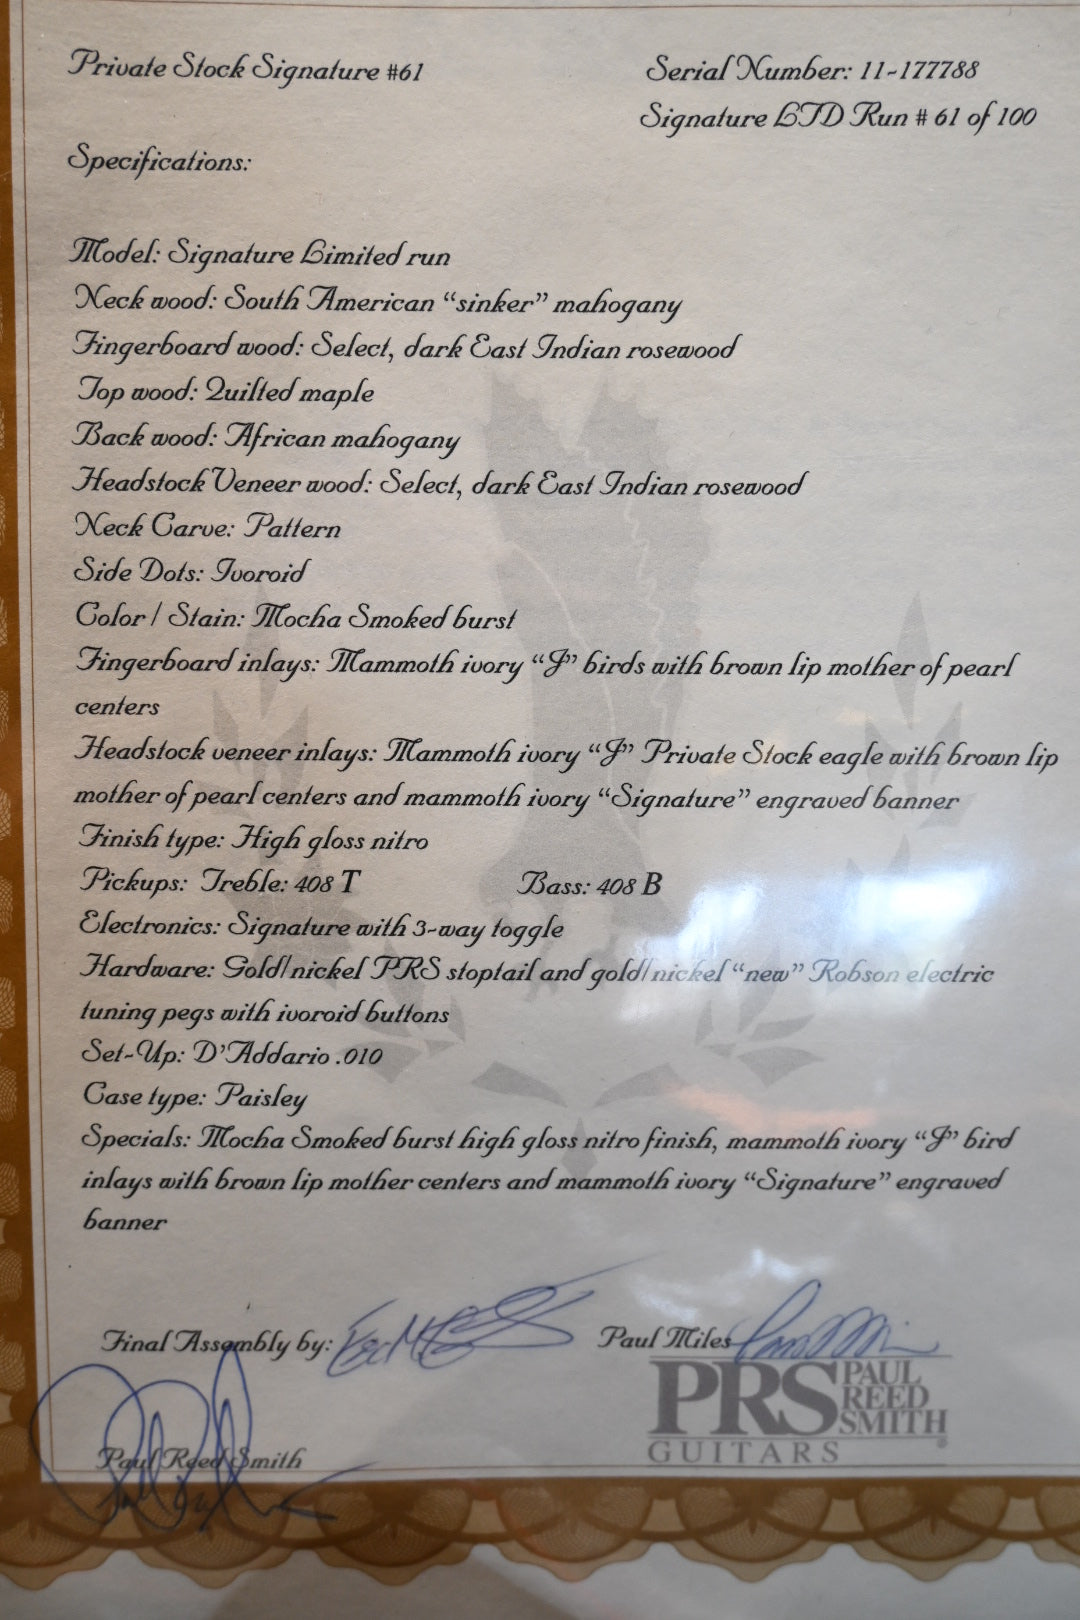 Private Stock Signature #61
Serial Number: 11-177788
Signature LTD Run # 61 of 100
Specifications:
Model: Signature Limited run
Neck wood: South American “sinker” mahogany
Fingerboard wood: Select, dark East Indian rosewood
Top wood: Quilted maple
Back wood: African mahogany
Headstock Veneer wood: Select, dark East Indian rosewood
Neck Carve: Pattern
Side Dots: Ivoroid
Color / Stain: Mocha Smoked burst
Fingerboard inlays: Mammoth ivory “J” birds with brown lip mother of pearl
centers
Headstock veneer inlays: Mammoth ivory “J” Private Stock eagle with brown lip
mother of pearl centers and mammoth ivory “Signature” engraved banner
Finish type: High gloss nitro
Pickups: Treble: 408 T Bass: 408 B
Electronics: Signature with 3-way toggle
Hardware: Gold/nickel PRS stoptail and gold/nickel “new” Robson electric
tuning pegs with ivoroid buttons
Set-Up: D’Addario .010
Case type: Paisley
Specials: Mocha Smoked burst high gloss nitro finish, mammoth ivory “J” bird
inlays with brown lip mother centers and mammoth ivory “Signature” engraved
banner
Final Assembly by:
Paul Miles
PRS PAUL
REED
SMITH
GUITARS
Paul Reed Smith